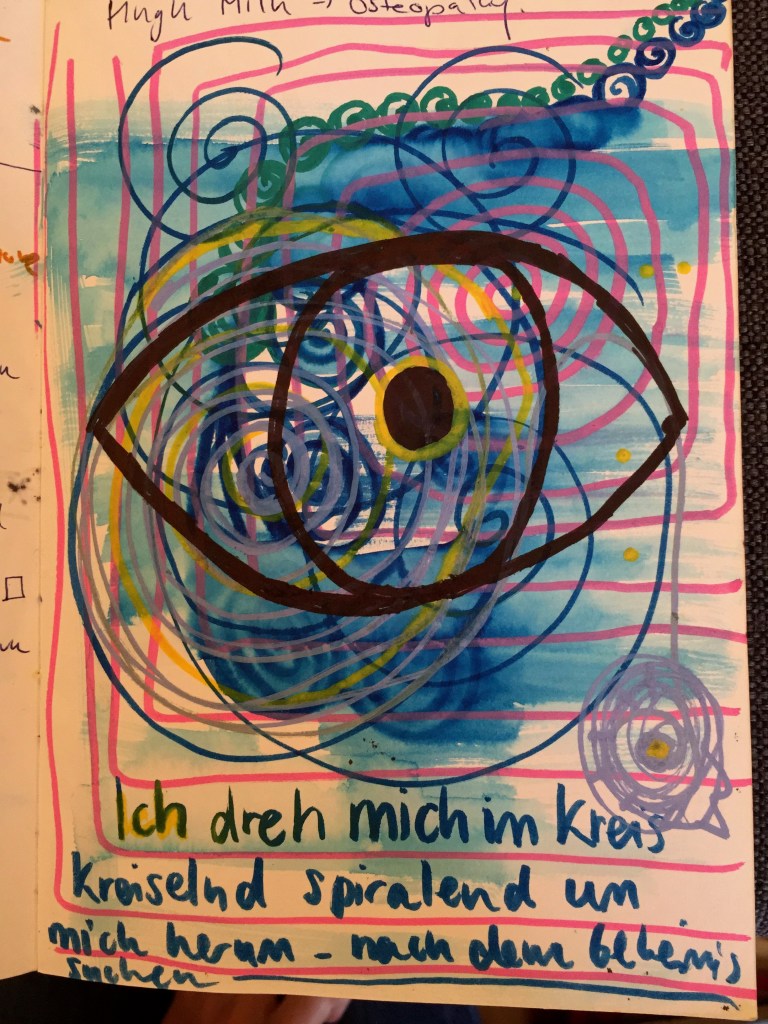 Hugh → Osteopathy.
Ich dreh mich im Kreis
Kreiselnd spiralend um
mich herum - nach dem Geheimnis
suchen